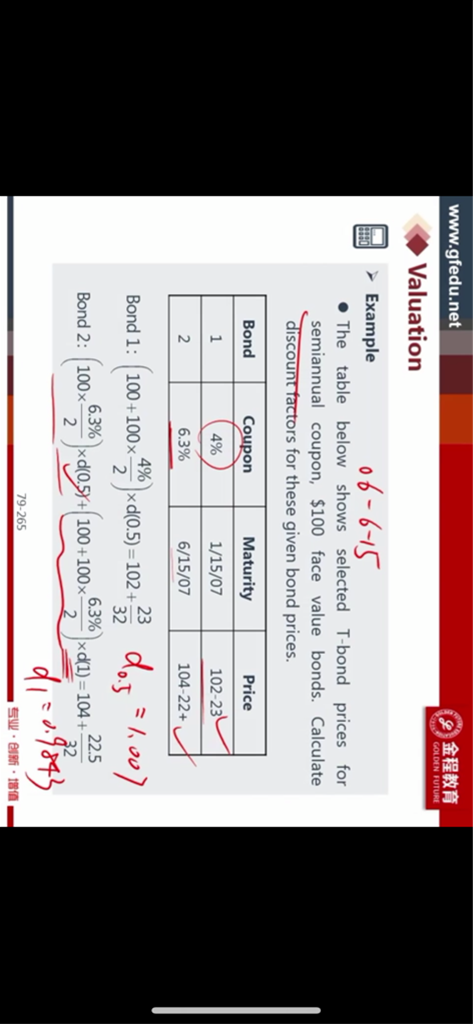 www.gfedu.net
金程教育
GOLDEN FUTURE
Valuation
➤ Example
06-6-15
● The table below shows selected T-bond prices for
semiannual coupon, $100 face value bonds. Calculate
discount factors for these given bond prices.
Bond Coupon Maturity Price
1 4% 1/15/07 102-23
2 6.3% 6/15/07 104-22+
Bond 1: (100+100×4%/2)×d(0.5)=102+23/32
d0.5=1.007
Bond 2: (100×6.3%/2)×d(0.5)+(100+100×6.3%/2)×d(1)=104+22.5/32
d1=0.9843
79-265
专业·创新·增值